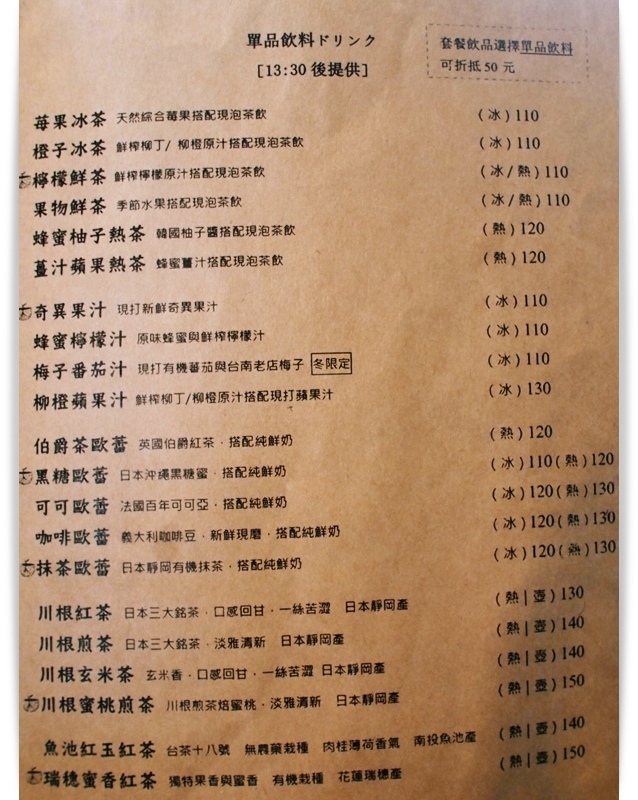 單品飲料ドリンク
[13:30 後提供]
套餐飲品選擇單品飲料
可折抵 50 元
莓果冰茶 天然綜合莓果搭配現泡茶飲 (冰) 110
橙子冰茶 鮮榨柳丁/ 柳橙原汁搭配現泡茶飲 (冰) 110
檸檬鮮茶 鮮榨檸檬原汁搭配現泡茶飲 (冰/熱) 110
果物鮮茶 季節水果搭配現泡茶飲 (冰/熱) 110
蜂蜜柚子熱茶 韓國柚子醬搭配現泡茶飲 (熱) 120
薑汁蘋果熱茶 蜂蜜薑汁搭配現泡茶飲 (熱) 120
奇異果汁 現打新鮮奇異果汁 (冰) 110
蜂蜜檸檬汁 原味蜂蜜與鮮榨檸檬汁 (冰) 110
梅子番茄汁 現打有機蕃茄與台南老店梅子 冬限定 (冰) 110
柳橙蘋果汁 鮮榨柳丁/柳橙原汁搭配現打蘋果汁 (冰) 130
伯爵茶歐蕾 英國伯爵紅茶．搭配純鮮奶 (熱) 120
黑糖歐蕾 日本沖繩黑糖蜜．搭配純鮮奶 (冰) 110(熱) 120
可可歐蕾 法國百年可可亞．搭配純鮮奶 (冰) 120(熱) 130
咖啡歐蕾 義大利咖啡豆．新鮮現磨．搭配純鮮奶 (冰) 120(熱) 130
抹茶歐蕾 日本靜岡有機抹茶．搭配純鮮奶 (冰) 120(熱) 130
川根紅茶 日本三大銘茶．口感回甘．一絲苦澀 日本靜岡產 (熱|壺) 130
川根煎茶 日本三大銘茶．淡雅清新 日本靜岡產 (熱|壺) 140
川根玄米茶 玄米香．口感回甘．一絲苦澀 日本靜岡產 (熱|壺) 140
川根蜜桃煎茶 川根煎茶焙蜜桃．淡雅清新 日本靜岡產 (熱|壺) 150
魚池紅玉紅茶 台茶十八號 無農藥栽種 肉桂薄荷香氣 南投魚池產 (熱|壺) 140
瑞穗蜜香紅茶 獨特果香與蜜香 有機栽種 花蓮瑞穗產 (熱|壺) 150